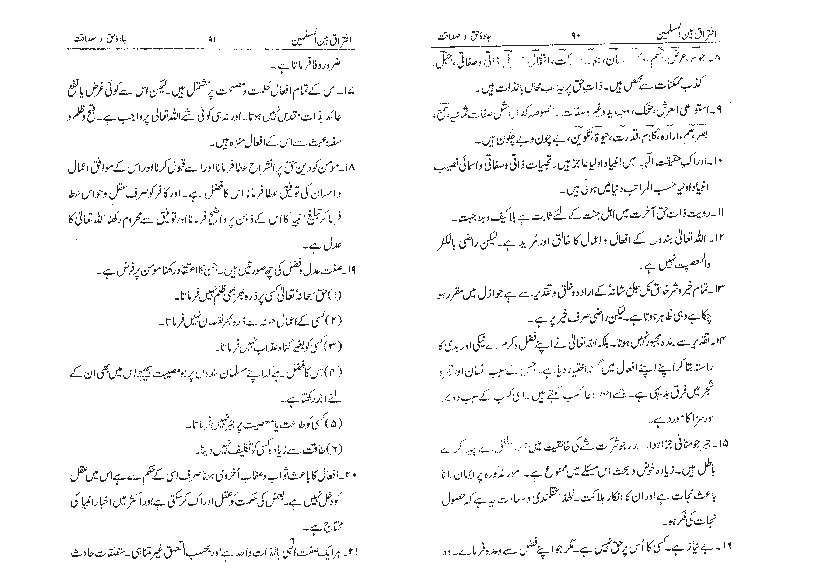 افتراق بین المسلمین ۹۰ جادۂ حق و صداقت
۸۔ جوہر، عرض، جسم، مکان، حرکت، انتقال، ذاتی و صفاتی، جہل،
کذب ممکنات سے مختص ہیں۔ ذات حق پر یہ سب محال بالذات ہیں۔
۹۔ استوا علی العرش، ضحک، وجہ، ید وغیرہ صفات مثل صفات ثمانیہ، سمع،
بصر، علم، ارادہ، کلام، قدرت، حیوٰۃ، تکوین، بے چون و بے چگون ہیں۔
۱۰۔ ادراک حقیقت الٰہیہ میں انبیاء و اولیاء عاجز ہیں۔ تجلیات ذاتی و صفاتی و اسمائی نصیب
انبیاء و اولیاء حسب المراتب دنیا میں ہوتی ہیں۔
۱۱۔ رویت ذات حق آخرت میں اہل جنت کے لئے ثابت ہے بلا کیف و بلا جہت۔
۱۲۔ اللہ تعالیٰ بندوں کے افعال و اعمال کا خالق اور مرید ہے۔ لیکن راضی بالکفر
والمعصیت نہیں ہے۔
۱۳۔ تمام خیر و شر خالق کل جل شانہ کے ارادہ و خلق و تقدیر سے ہے جو ازل میں مقرر ہو
چکا ہے وہی ظاہر ہوتا ہے۔ لیکن راضی صرف خیر پر ہے۔
۱۴۔ تقدیر سے بندہ مجبور نہیں ہوتا۔ بلکہ اللہ تعالیٰ نے اپنے فضل و کرم سے نیکی اور بدی کا
راستہ بتا کر اپنے اپنے افعال میں اختیار دیا ہے۔ جس کے سبب انسان اور
شجر میں فرق بدیہی ہے۔ جسے کسب کہتے ہیں۔ اسی کسب کے سبب وہ
اور سزا کا مورد ہے۔
۱۵۔ جبر جو منافی جزا ہو اور جو شرکت شے کی خالقیت میں کرے
باطل ہیں۔ زیادہ خوض و بحث اس مسئلے میں ممنوع ہے۔ امور مذکورہ پر ایمان لانا
باعث نجات ہے اور ان کا انکار ہلاکت۔ لہٰذا عقلمندی و سعادت یہ ہے کہ حصول
نجات کی فکر ہو۔
۱۶۔ بے نیاز ہے۔ کسی کا اس پر حق نہیں ہے۔ مگر جو اپنے فضل سے وعدہ فرمائے۔ وہ
افتراق بین المسلمین ۹۱ جادۂ حق و صداقت
ضرور وفا فرماتا ہے۔
۱۷۔ اس کے تمام افعال حکمت و مصلحت پر مشتمل ہیں۔ لیکن اس سے کوئی غرض یا نفع
عائد بذات مقدس نہیں ہوتا۔ اور نہ ہی کوئی شے اللہ تعالیٰ پر واجب ہے۔ قبح و ظلم و
سفہ و عبث سے اس کے افعال منزہ ہیں۔
۱۸۔ مؤمن کو دین حق پر انشراح عطا فرمانا اور اسے قبول کرنا اور اس کے موافق اعمال
و احسان کی توفیق عطا فرمانا اس کا فضل ہے۔ اور کافر کو صرف عقل و حواس عطا
فرما کر تبلیغ انبیاء کا اس کے ذہن پر واضح فرمانا اور توفیق سے محروم رکھنا اللہ تعالیٰ کا
عدل ہے۔
۱۹۔ صفت عدل و فضل کی چھ صورتیں ہیں۔ جن کا اعتقاد رکھنا مؤمن پر فرض ہے۔
(۱) حق سبحانہ تعالیٰ کسی پر ذرہ بھر بھی ظلم نہیں فرماتا۔
(۲) کسی کے اعمال حسنہ سے ذرہ بھر نقصان نہیں فرماتا۔
(۳) کسی کو بغیر گناہ عذاب نہیں فرماتا۔
(۴) اس کا فضل ہے۔ لہٰذا اپنے مسلمان بندوں پر جو مصیبت بھیجے اس میں بھی ان کے
لئے اجر رکھتا ہے۔
(۵) کسی کو طاعت یا معصیت پر جبر نہیں فرماتا۔
(۶) طاقت سے زیادہ کسی کو تکلیف نہیں دیتا۔
۲۰۔ افعال کا باعث ثواب و عقاب اخروی ہونا صرف اسی کے حکم سے ہے اس میں عقل
کو دخل نہیں ہے۔ بعض کی حکمت کو عقل ادراک کر سکتی ہے اور اکثر میں اخبار انبیاء کی
محتاج ہے۔
۲۱۔ ہر ایک صفت الٰہی بالذات واحد ہے اور بحسب التعلق غیر متناہی۔ متعلقات حادث